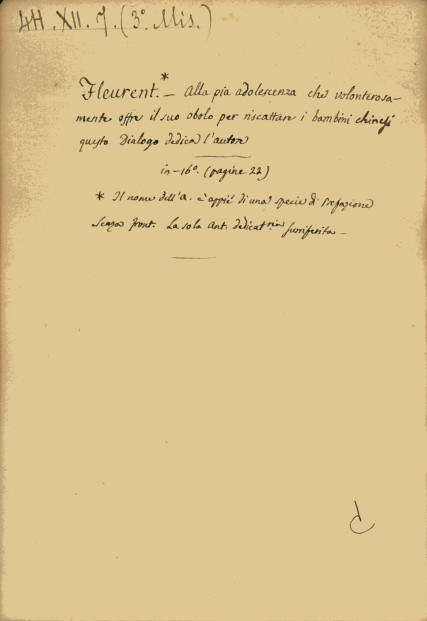 44. XII. 7. (3.º Mis.)
Fleurent.* — Alla pia adolescenza che volonterosa-
mente offre il suo obolo per riscattare i bambini chinesi
questo Dialogo dedica l'autore
in-16º. (pagine 22)
* Il nome dell'A. è appiè di una specie di Prefazione
Senza front. La sola Ant. dedicatria surriferita —